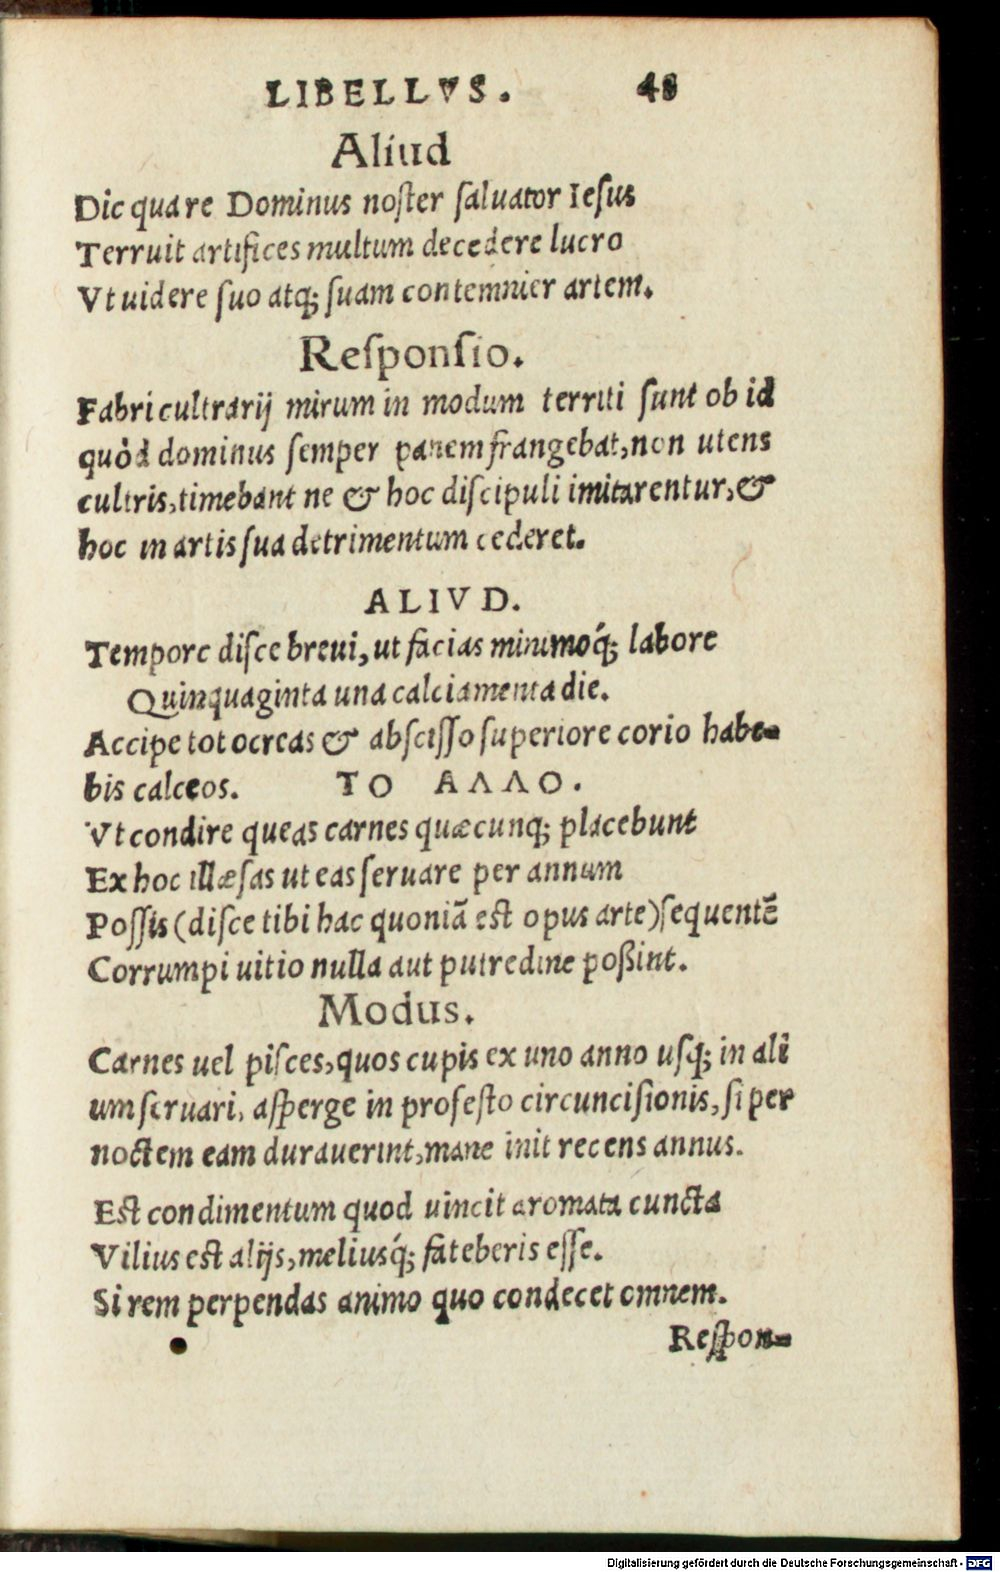 LIBELLVS. 48
Aliud
Dic quare Dominus noſter ſaluator Ieſus
Terruit artifices multum decedere lucro
Vt uidere ſuo atq; ſuam contemnier artem.
Reſponſio.
Fabri cultrarij mirum in modum territi ſunt ob id
quòd dominus ſemper panem frangebat, non utens
cultris, timebant ne & hoc diſcipuli imitarentur, &
hoc in artis ſua detrimentum cederet.
ALIVD.
Tempore diſce breui, ut facias minimoq́; labore
Quinquaginta una calciamenta die.
Accipe tot ocreas & abſciſſo ſuperiore corio habe-
bis calceos. ΤΟ ΑΛΛΟ.
Vt condire queas carnes quæcunq; placebunt
Ex hoc illæſas ut eas ſeruare per annum
Poſſis (diſce tibi hac quoniã est opus arte) ſequentẽ
Corrumpi uitio nulla aut putredine poßint.
Modus.
Carnes uel piſces, quos cupis ex uno anno uſq; in ali
um ſeruari, aſperge in profeſto circunciſionis, ſi per
noctem eam durauerint, mane init recens annus.
Est condimentum quod uincit aromata cuncta
Vilius est alijs, meliusq́; fateberis eſſe.
Si rem perpendas animo quo condecet omnem.
Reſpon-
Digitalisierung gefördert durch die Deutsche Forschungsgemeinschaft - DFG